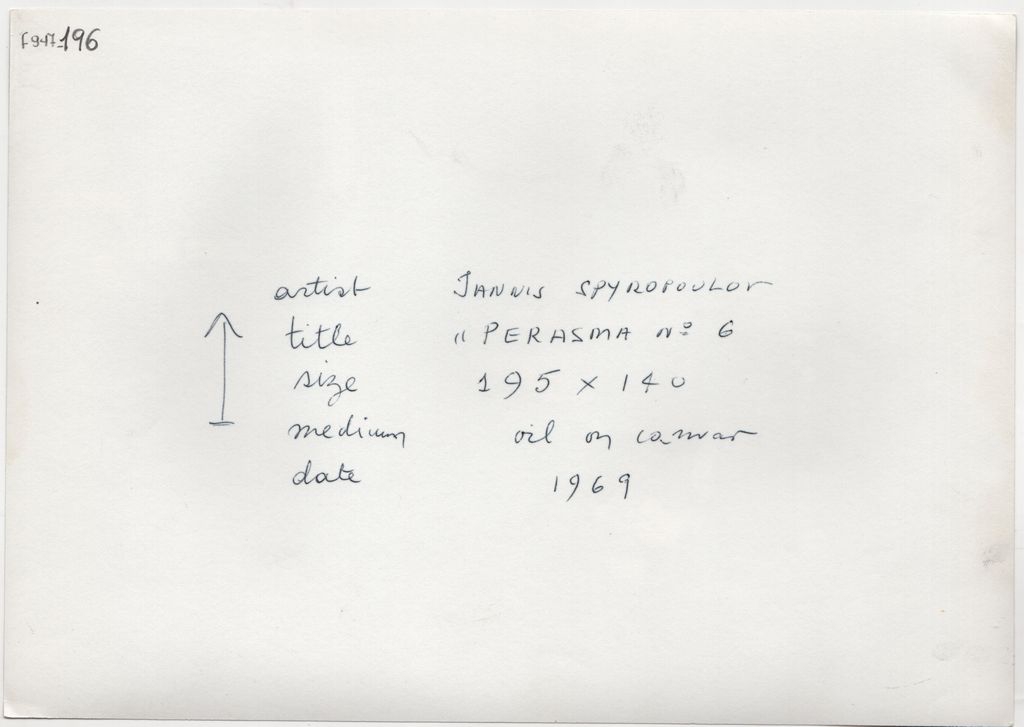 f947-196
artist JANNIS SPYROPOULOS
title "PERASMA Nº 6
size 195 x 140
medium oil on canvas
date 1969